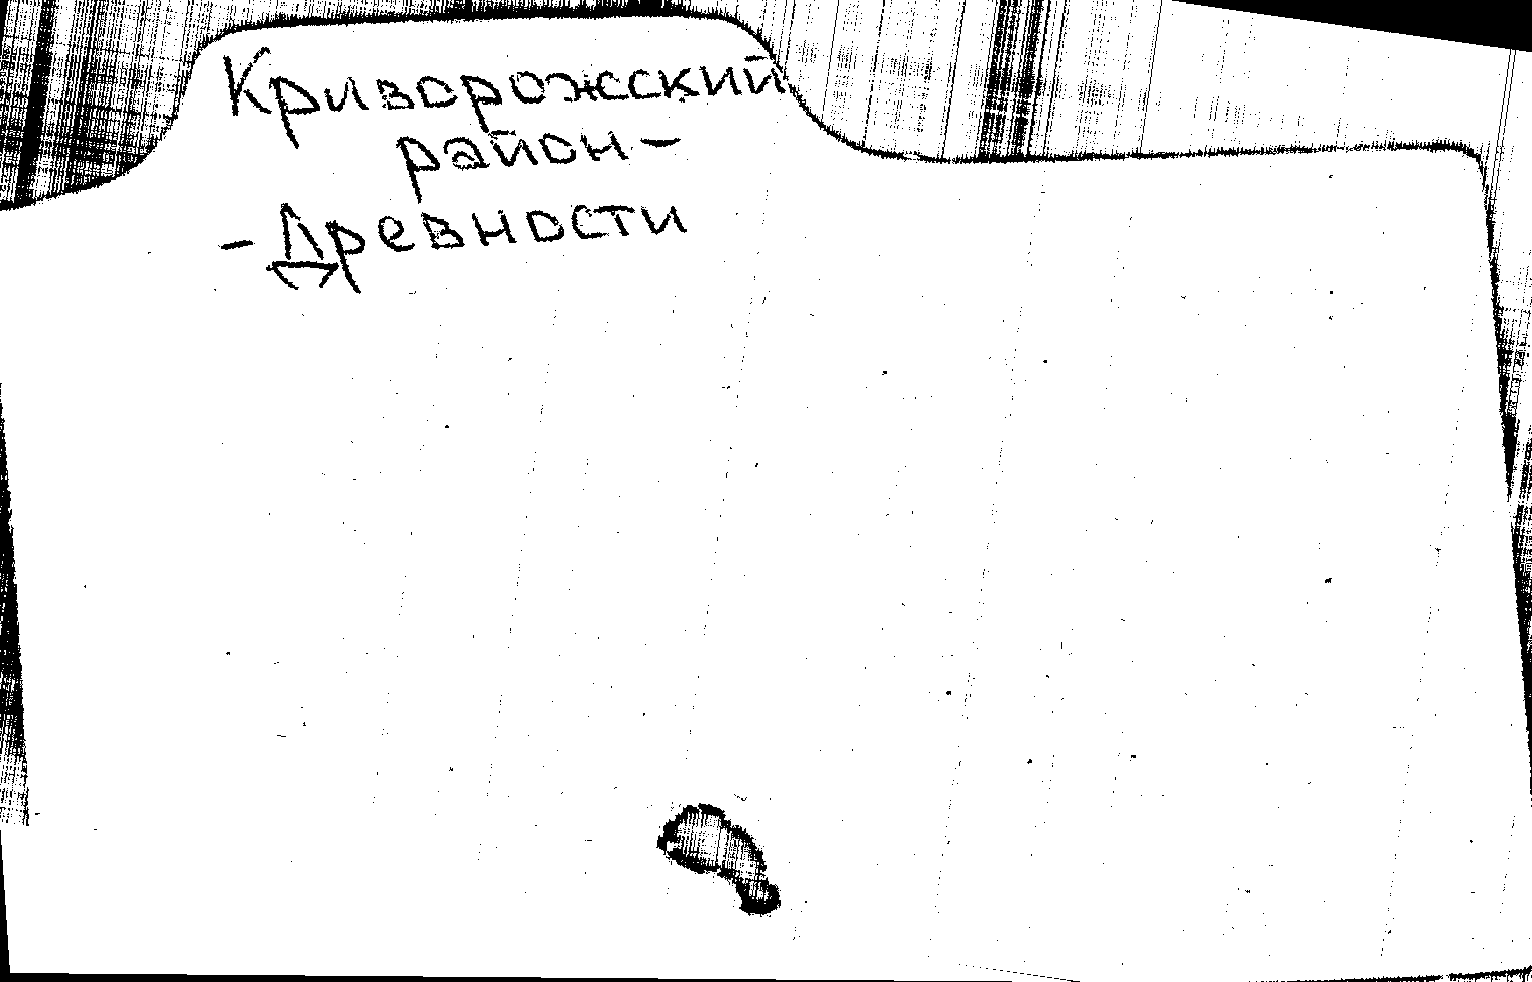 Криворожсский
район -
- Древности